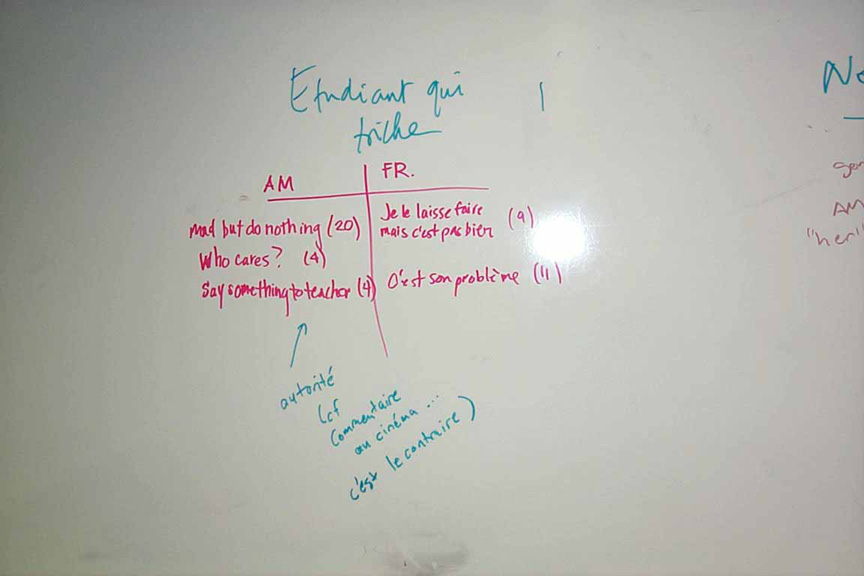 Etudiant qui
triche
AM
FR.
mad but do nothing (20)
Who cares? (4)
Say something to teacher (4)
Je le laisse faire
mais c'est pas bien (9)
C'est son problème (11)
autorité
(cf
commentaire
au cinéma ...
c'est le contraire)
AM